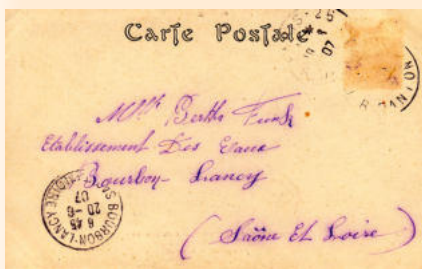 Carte Postale
25
07
Mlle Berthe Funk
Etablissement Des Eaux
Bourbon Lancy
(Saône Et Loire)
BOURBON-LANCY
6 45
20-6
07